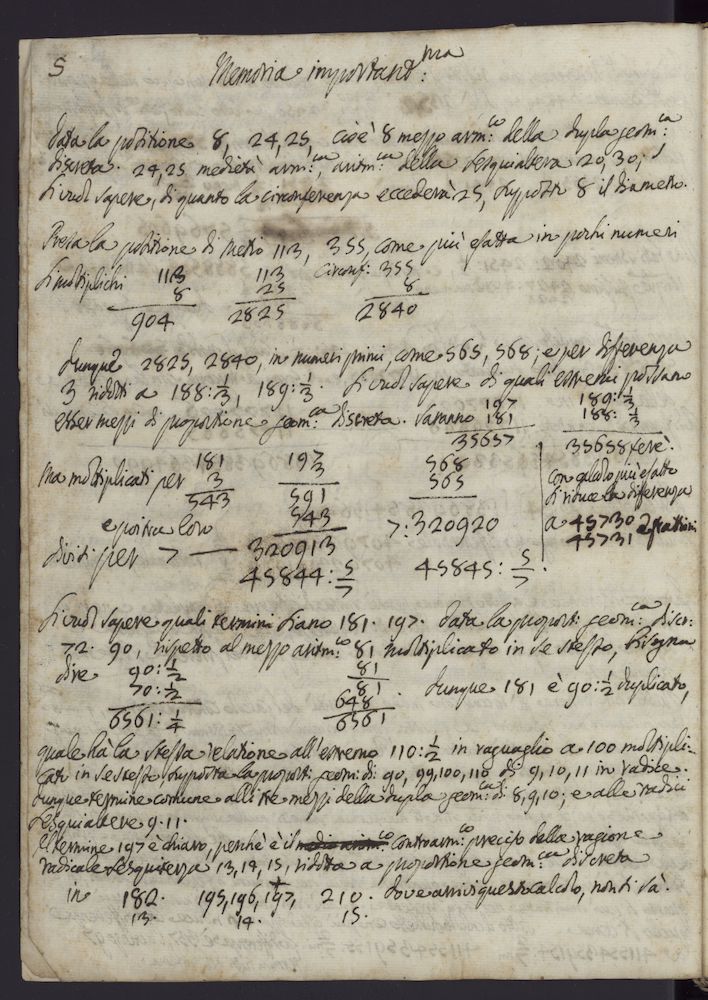 5
Memoria important:ma
Data la positione 8, 24, 25, cioè 8 mezzo arm:co della dupla geom:ca
discreta. 24, 25 medietà arm:ca, aritm:ca della sesquialtera 20, 30,
si vuol sapere, di quanto la circonferenza eccederà 25, supposto 8 il diametro.
Presa la positione di Metio 113, 355, come più esatta in pochi numeri
si moltiplichi 113 113 Circonf: 355
8 25 8
904 2825 2840
dunque 2825, 2840, in numeri primi, come 565, 568; e per differenza
3 ridotti a 188:1/3, 189:1/3. Si vuol sapere di quali estremi possano
esser mezzi di proportione geom:ca discreta. Saranno 197 189:1/3
181 188:1/3
35657 35658 ferè.
Ma moltiplicati per 181 197 568
3 3 565
543 591
543 7:320920
e poi tra loro
divisi per 7 — 320913
45844:5/7 45845:5/7.
con calcolo più esatto
si riduce la differenza
a 45730
45731
Si vuol sapere quali termini siano 181. 197. Data la proport: geom:ca discr:
72. 90, rispetto al mezzo aritm:co 81 moltiplicato in se stesso, bisogna
dire 90:1/2 81
70:1/2 81
648
6561:1/4 6561
dunque 181 è 90:1/2 duplicato,
quale hà la stessa relatione all'estremo 110:1/2 in raguaglio a 100 moltipli-
cato in se stesso supposta la proport: geom: di: 90, 99, 100, 110 di 9, 10, 11 in radice.
dunque termine comune alli tre mezzi della dupla geom:ca di 8, 9, 10; e alle radici
sesquialtere 9. 11.
Il termine 197 è chiaro, perchè è il contrarm:co preciso della ragione
radicale sesquiterza 13, 14, 15, ridotta a proportione geom:ca discreta
in 182. 195, 196, 197, 210. Dove arrivi questo calcolo, non si sà.
13. 14. 15.